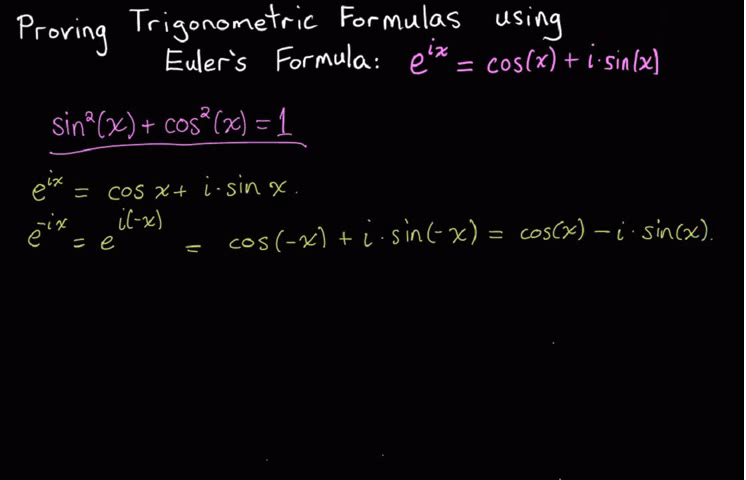 Proving Trigonometric Formulas using
Euler's Formula: e^{ix} = cos(x) + i·sin(x)
sin²(x) + cos²(x) = 1
e^{ix} = cos x + i·sin x.
e^{-ix} = e^{i(-x)} = cos(-x) + i·sin(-x) = cos(x) - i·sin(x).